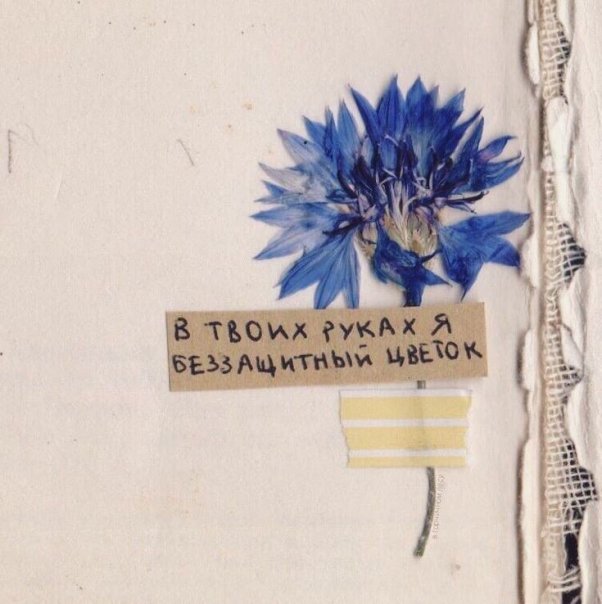 В ТВОИХ РУКАХ Я
БЕЗЗАЩИТНЫЙ ЦВЕТОК